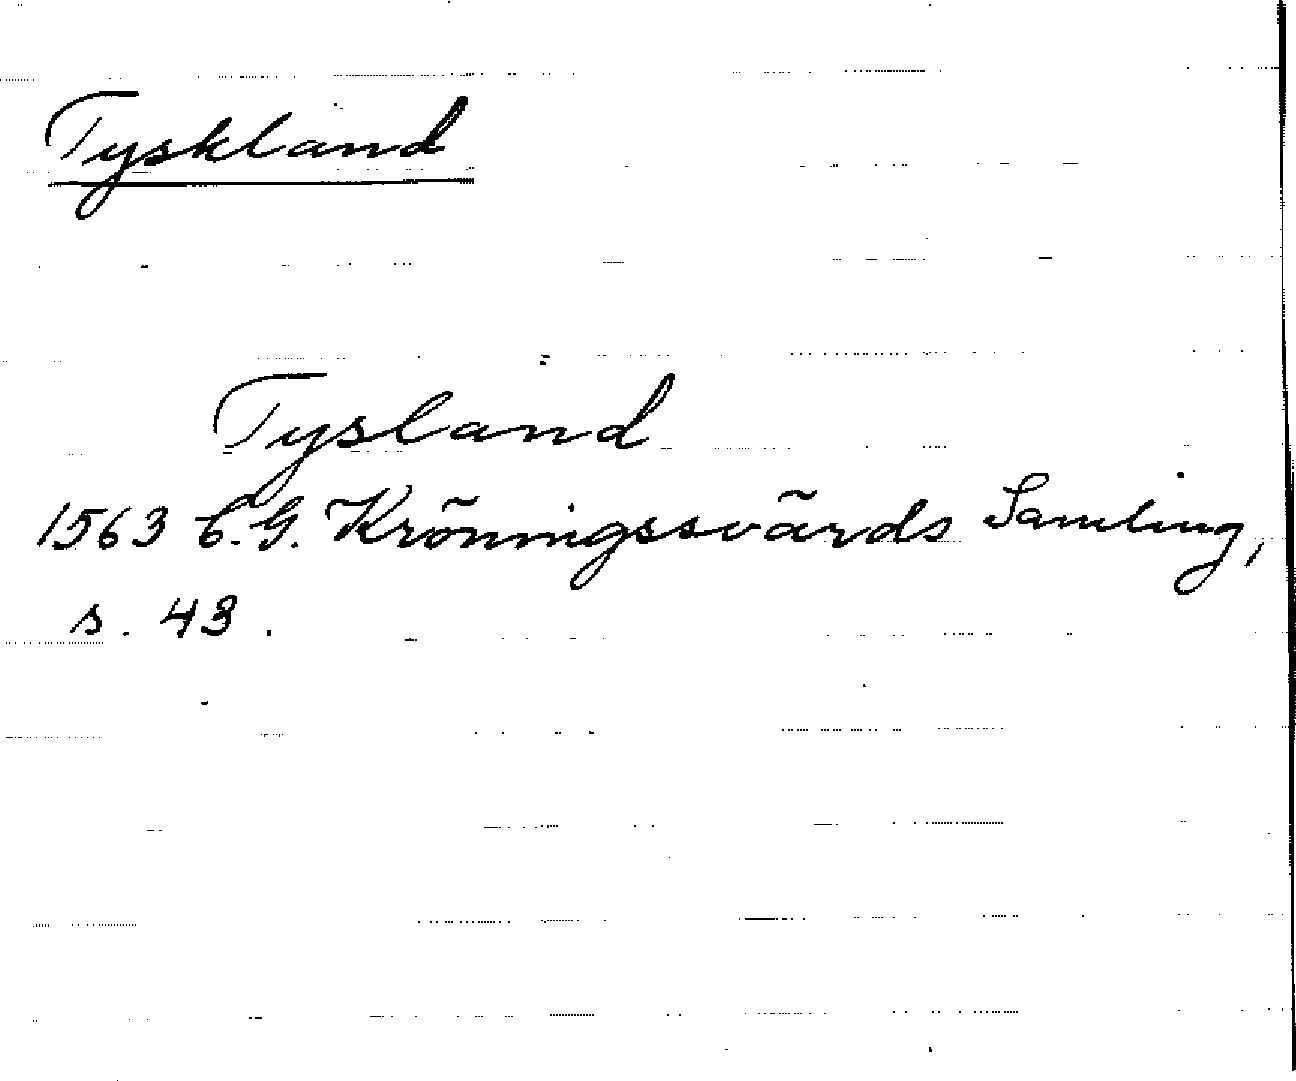 Tyskland
Tysland
1563 C.G. Kröningssvärds Samling,
s. 43.